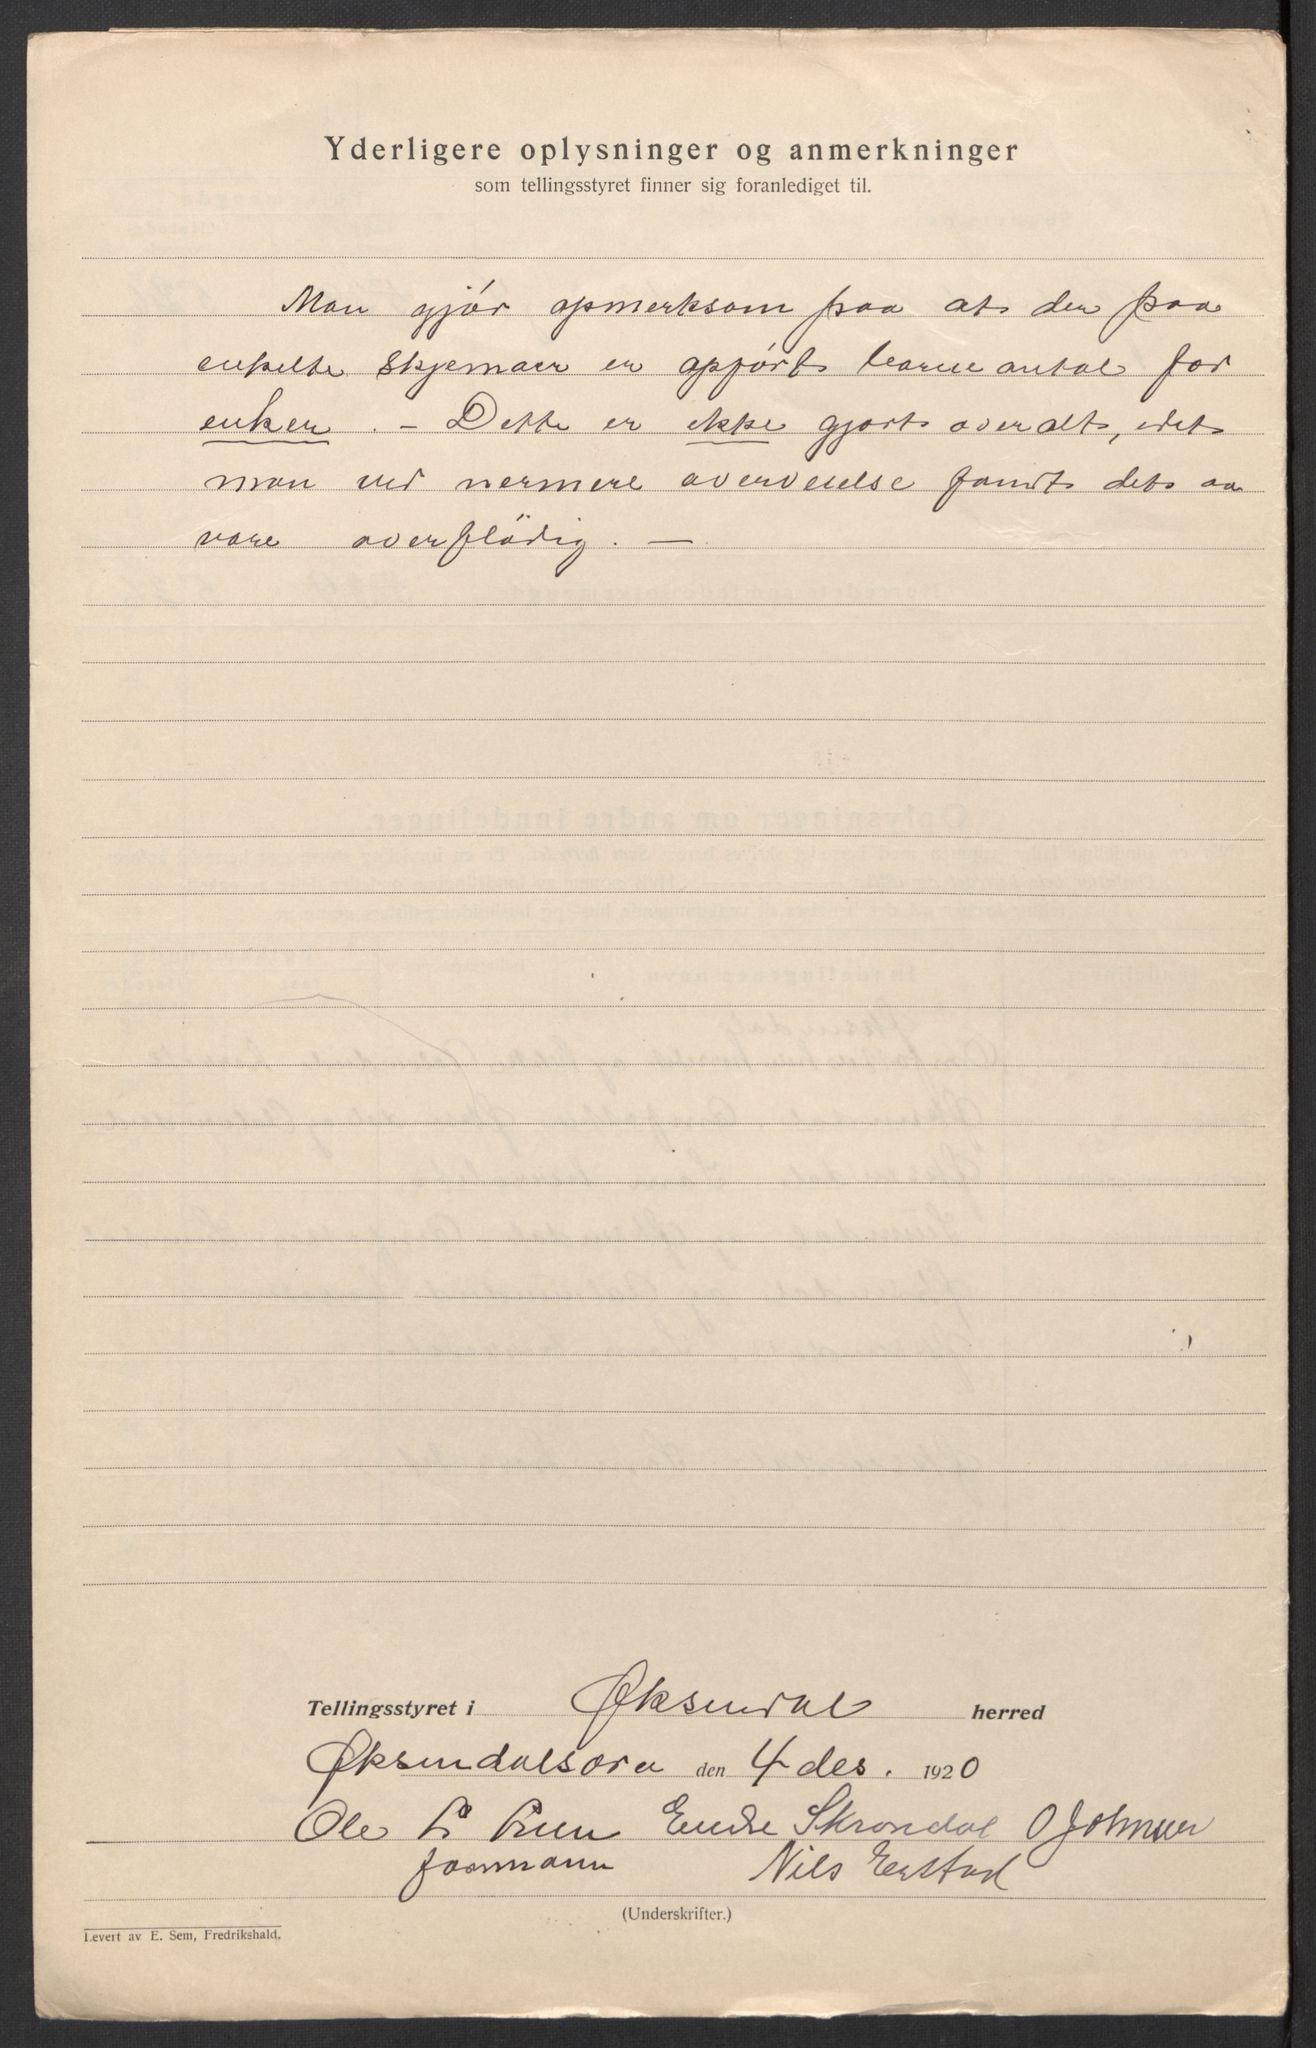 Yderligere oplysninger og anmerkninger
som tellingsstyret finner sig foranlediget til.
Man gjør opmerksom paa at der paa
enkelte skjemaer er opført barneantal for
enker. - Dette er ikke gjort overalt, idet
man ved nermere overveielse fandt det aa
være overflødig. -
Tellingsstyret i Øksendal herred
Øksendalsøra den 4 des. 1920
Ole Endre Skrondal O Johnsen
formann Nils Erstad
(Underskrifter.)
Levert av E. Sem, Fredrikshald.